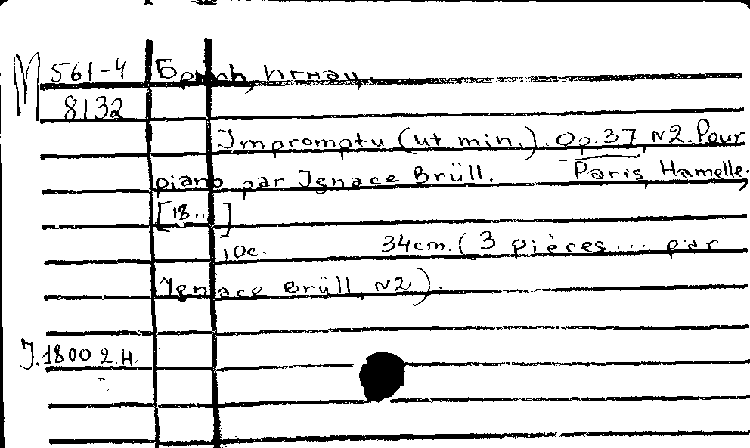 М 561-4 Брюль, Игнац.
8132
Impromptu (ut min.). Op. 37, N2. Pour
piano par Ignace Brüll. Paris, Hamelle,
[18...]
10 c. 34 cm. (3 pièces... par
Ignace Brüll, N2).
J. 1800 2.H.